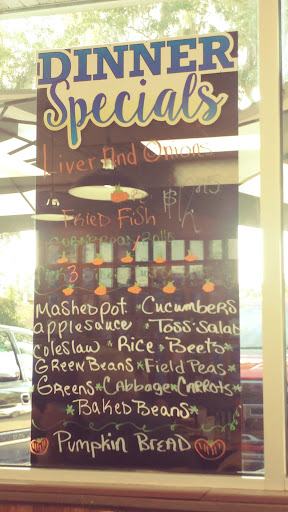 DINNER
Specials
Liver And Onions
Fried Fish
3
Mashedpot Cucumbers
applesauce Toss Salad
Coleslaw Rice Beets
Green Beans Field Peas
Greens Cabbage Carrots
Baked Beans
Pumpkin Bread